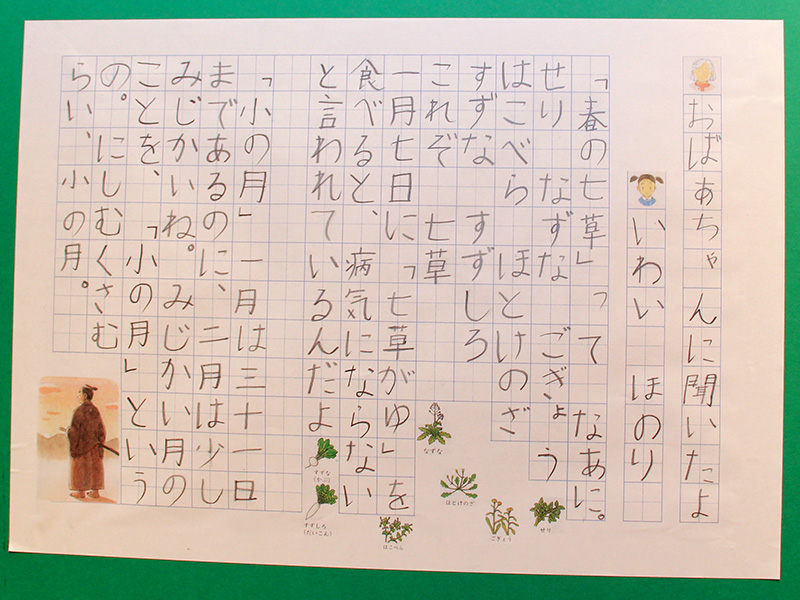 おばあちゃんに聞いたよ
いわい ほのり
「春の七草」って なあに。
せり なずな ごぎょう
はこべら ほとけのざ
すずな すずしろ
これぞ 七草
一月七日に「七草がゆ」を
食べると、病気にならない
と言われているんだよ
「小の月」一月は三十一日
まであるのに、二月は少し
みじかいね。みじかい月の
ことを、「小の月」という
の。にしむくさむ
らい、小の月。
せり
ごぎょう
ほとけのざ
なずな
はこべら
すずな
(かぶ)
すずしろ
(だいこん)